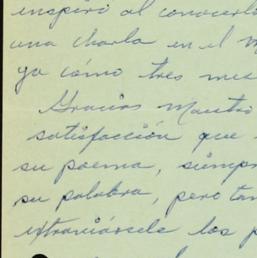 inspiró al conocerl
una charla en el M
ya cómo tres mes
Gracias Maestro
satisfacción que
su poema, siempr
su palabra, pero tan
extraviársele los p